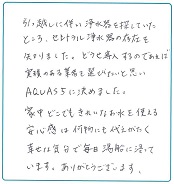 引っ越しに伴い浄水器を探していた
ところ、セントラル浄水器の存在を
知りました。どうせ導入するのであれば
実績のある業者を選びたいと思い
AQUASSに決めました。
家中どこでもきれいなお水を使える
安心感は何物にも代えがたく
幸せな気分で毎日湯船に浸って
います。ありがとうございます。